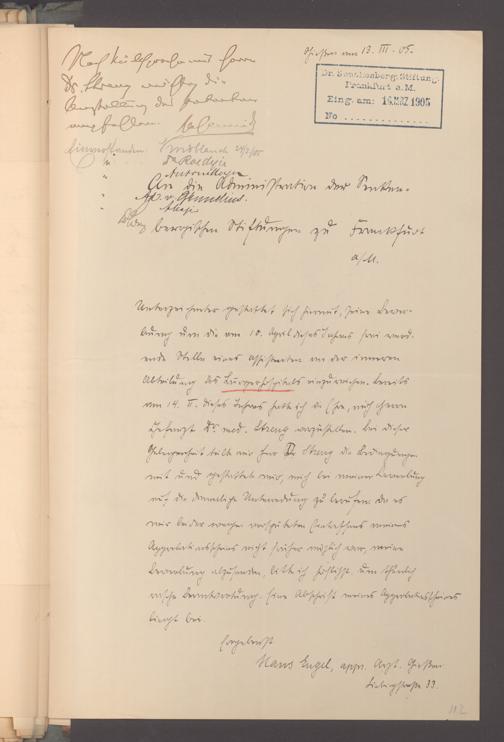 Gießen am 13. III. 05.
Dr. Senckenberg. Stiftung
Frankfurt a. M.
Eing. am: 16. MRZ. 1905
No
Nach Rücksprache mit Herrn
Dr. Streng möchte ich die
Anstellung des Petenten
empfehlen.
Einverstanden:
An die Administration der Sencken-
bergischen Stiftungen zu Frankfurt
a/M.
Unterzeichneter gestattet sich hiermit, seine Bewer-
bung um die am 10. April dieses Jahres frei werd-
ende Stelle eines Assistenten an der inneren
Abteilung des Bürgerhospitals einzureichen. Bereits
am 14. II. dieses Jahres hatte ich die Ehre, mich Herrn
Dr. med. Streng vorzustellen. Bei dieser
Gelegenheit teilte mir Herr Dr. Streng die Bedingungen
mit und gestattete mir, mich bei meiner Bewerbung
auf die Unterredung zu berufen. Da es
mir leider wegen verspäteten Eintreffens meines
Approbationsscheines nicht früher möglich war, meine
Bewerbung abzusenden, bitte ich höflichst um
rasche Beantwortung. Eine Abschrift meines Approbationsscheines
liegt bei.
Ergebenst
Hans Engel, appr. Arzt. Gießen
Liebigstraße 33.